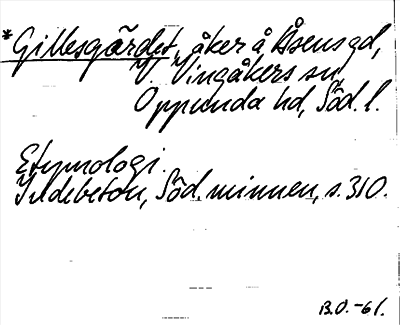 *Gillesgärdet, åker å Åsens gd,
V. Vingåkers sn,
Oppunda hd, Söd. l.
Etymologi.
Indebetou, Söd. minnen, s. 310.
B.O. -61.